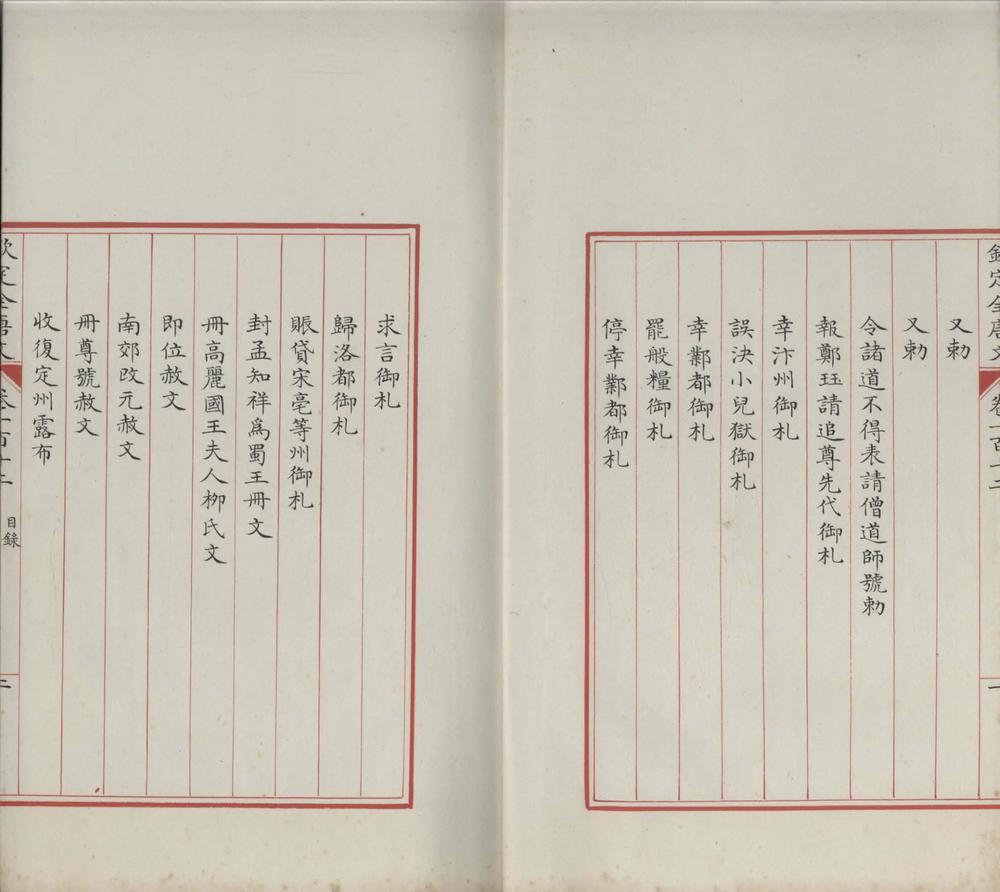 欽定全唐文 卷一百十二 一
又勅
又勅
令諸道不得表請僧道師號勅
報鄭珏請追尊先代御札
幸汴州御札
誤決小兒獄御札
幸鄴都御札
罷般糧御札
停幸鄴都御札
求言御札
歸洛都御札
賑貸宋亳等州御札
封孟知祥爲蜀王冊文
冊高麗國王夫人柳氏文
即位赦文
南郊改元赦文
冊尊號赦文
收復定州露布
欽定全唐文 卷一百十二 目錄 二